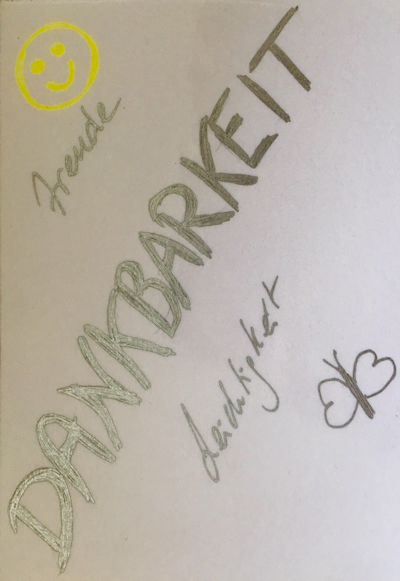 Freude
DANKBARKEIT
Leichtigkeit